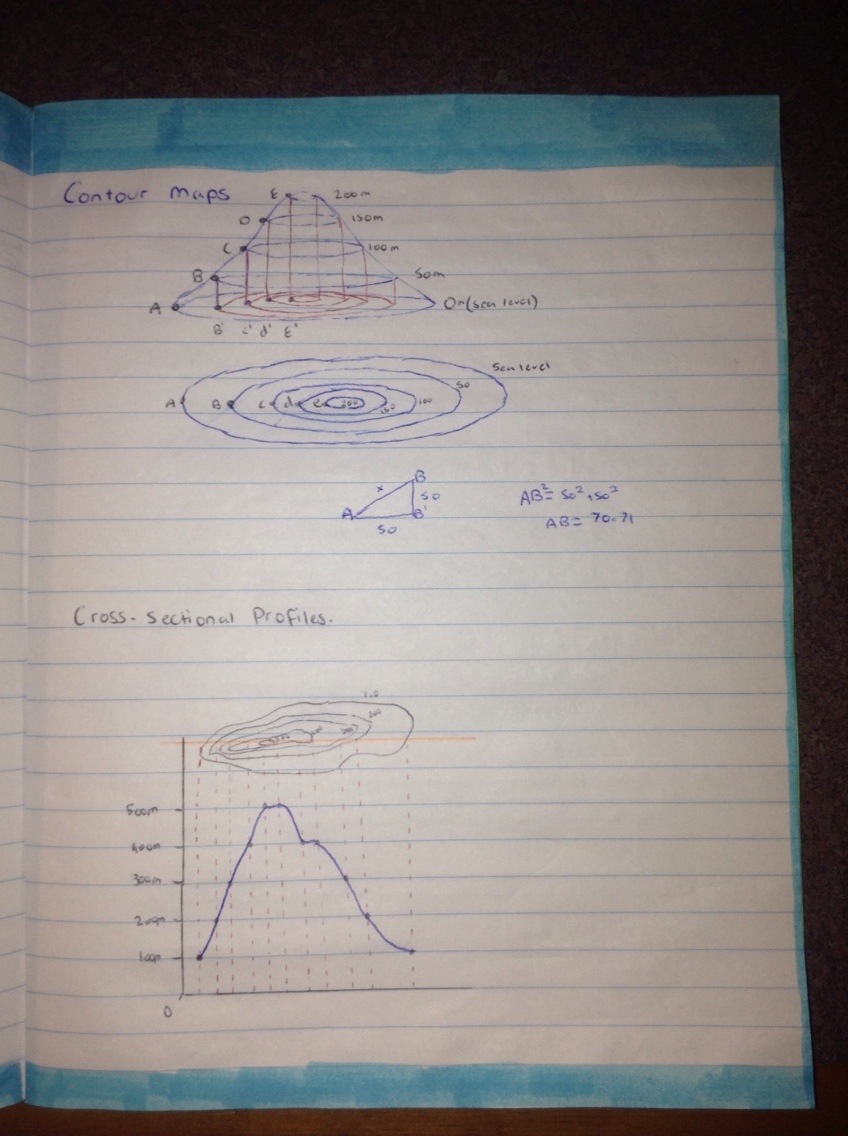 Contour Maps
E 200m
D 150m
C 100m
B 50m
A 0m (sea level)
B' c' d' E'
Sea level
A B c d e 200 150 100 50
B
x 50
A B'
50
AB² = 50² + 50²
AB = 70.71
Cross-sectional Profiles.
100
200
500m
400m
300m
200m
100m
0